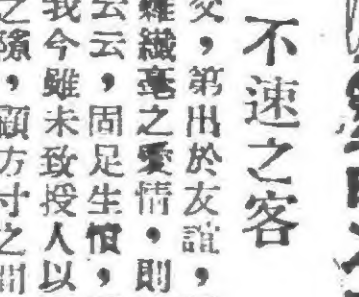 不速之客
交，第出於友誼，
纖毫之愛情，則
云云，固足生恨，
我今雖未致授人以
之隙，顧方寸之間